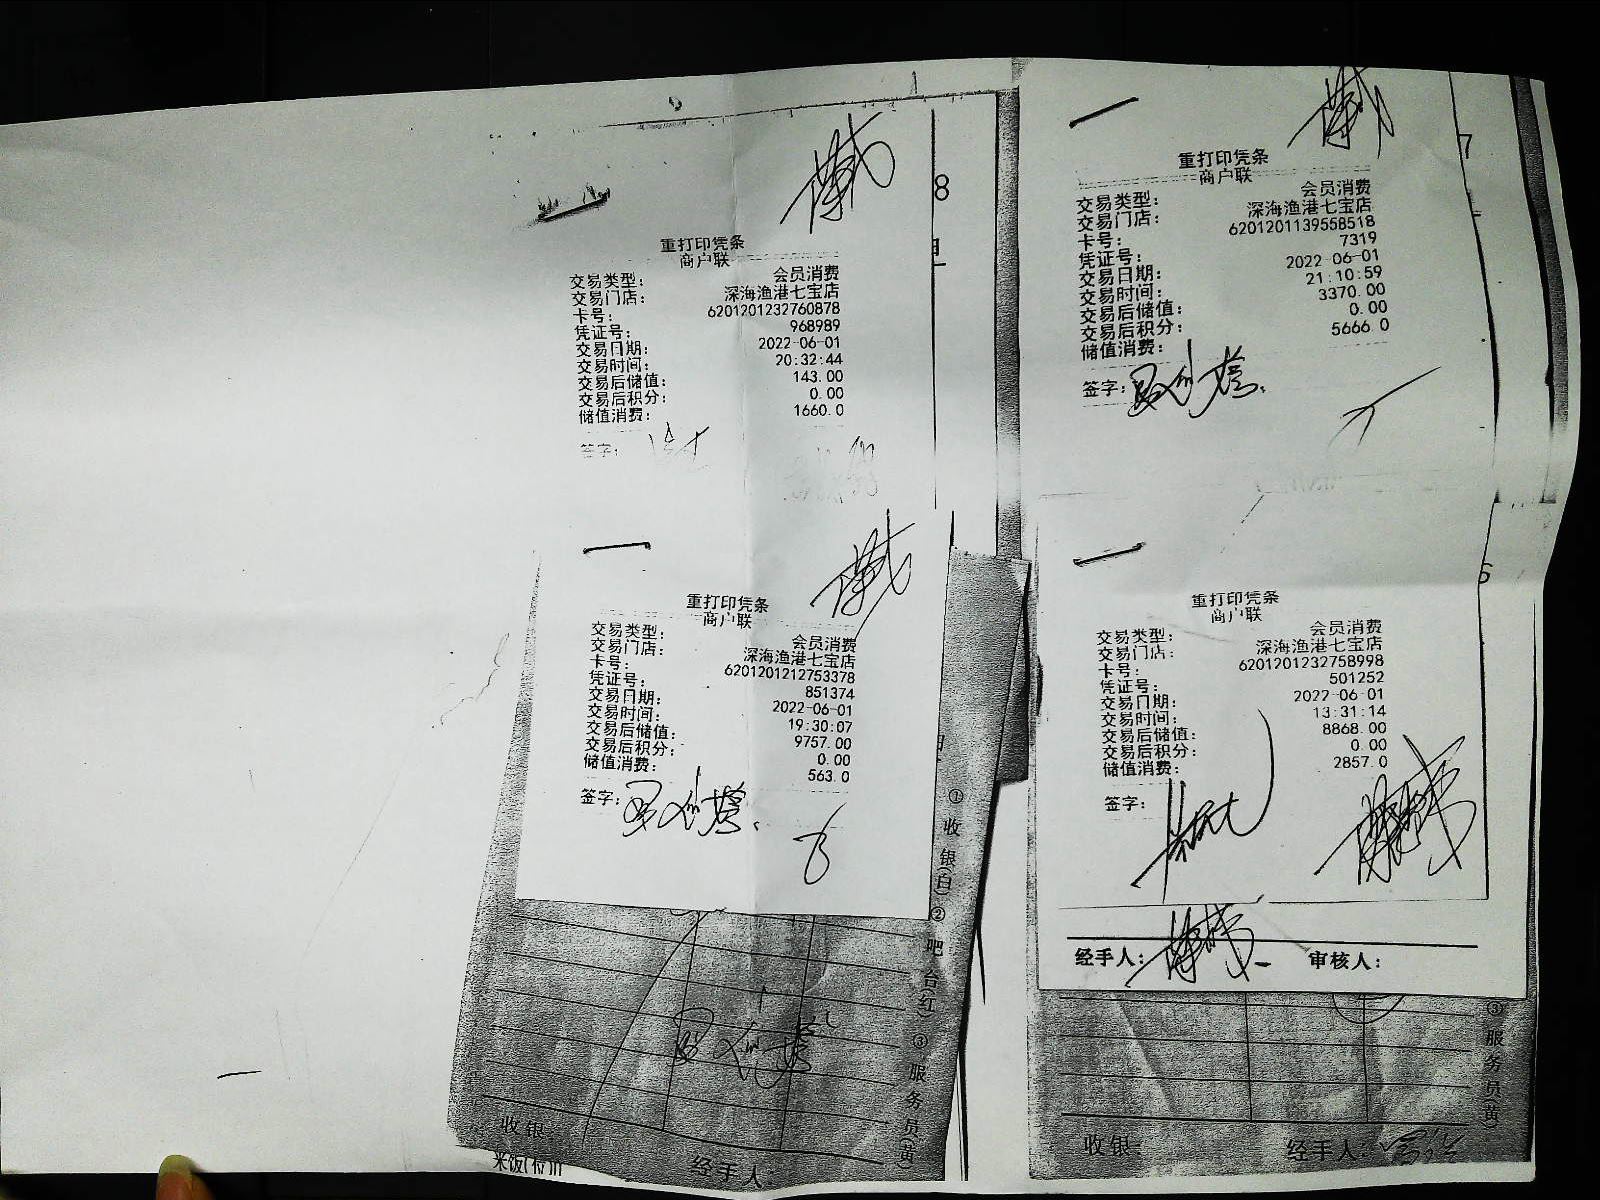 重打印凭条
商户联
交易类型： 会员消费
交易门店： 深海渔港七宝店
卡号： 6201201232760878
凭证号： 968989
交易日期： 2022-06-01
交易时间： 20:32:44
交易后储值： 143.00
交易后积分： 0.00
储值消费： 1660.0
签字：
8
重打印凭条
商户联
交易类型： 会员消费
交易门店： 深海渔港七宝店
卡号： 6201201139558518
凭证号： 7319
交易日期： 2022-06-01
交易时间： 21:10:59
交易后储值： 3370.00
交易后积分： 0.00
储值消费： 5666.0
签字：
7
重打印凭条
商户联
交易类型： 会员消费
交易门店： 深海渔港七宝店
卡号： 6201201212753378
凭证号： 851374
交易日期： 2022-06-01
交易时间： 19:30:07
交易后储值： 9757.00
交易后积分： 0.00
储值消费： 563.0
签字：
①收银(白)②吧台(红)③服务员(黄)
收银
经手人
米饭(位)
重打印凭条
商户联
交易类型： 会员消费
交易门店： 深海渔港七宝店
卡号： 6201201232758998
凭证号： 501252
交易日期： 2022-06-01
交易时间： 13:31:14
交易后储值： 8868.00
交易后积分： 0.00
储值消费： 2857.0
签字：
6
经手人： 审核人：
③服务员(黄)
收银 经手人：